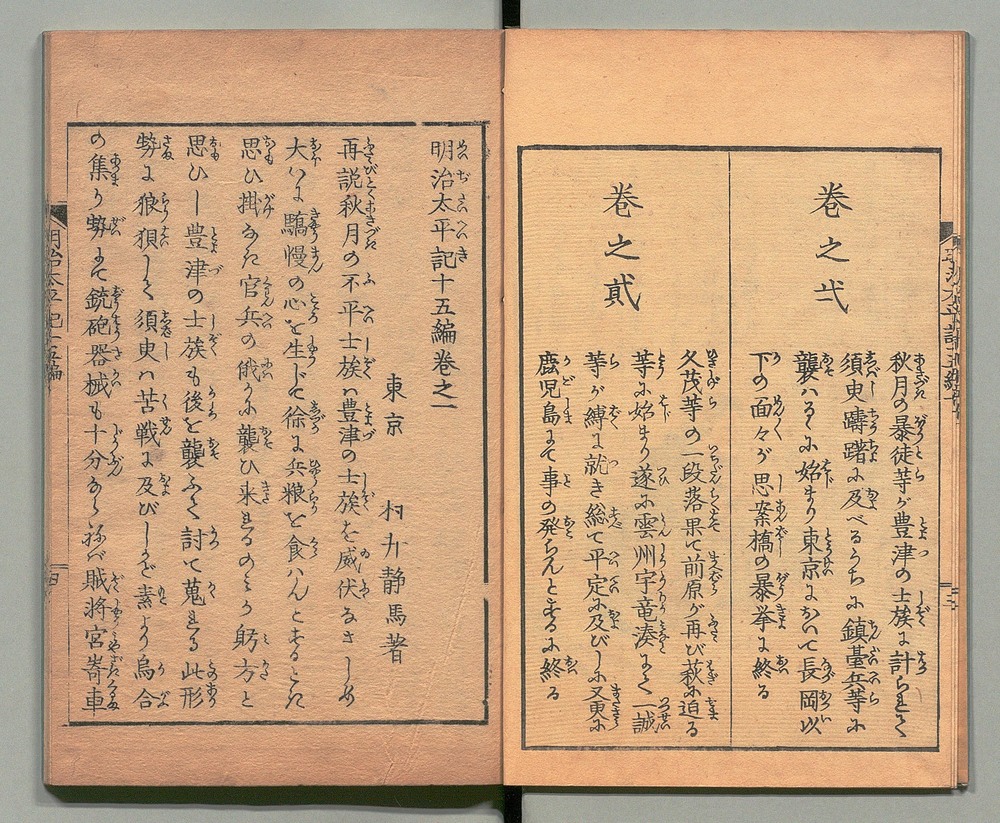 巻之弌
秋月の暴徒等が豊津の士族に計られて
須臾躊躇に及べるうちに鎮臺兵等に
襲はるゝに始まり東京において長岡以
下の面々が思案橋の暴挙に終る
巻之貳
久茂等の一段落果て前原が再び萩に迫る
等に始まり遂に雲州宇竜湊にて一誠
等が縛に就き総て平定に及びしに又更に
鹿児島にて事の発らんとするに終る
明治太平記十五編巻之一
東京 村井静馬著
再説秋月の不平士族ハ豊津の士族を威伏なさしめ
大いに驕慢の心を生じて徐に兵粮を食ハんとするとき
思ひ掛なき官兵の俄かに襲ひ来るのミか躬方と
思ひし豊津の士族も後を襲ふて討て蒐る此形
勢に狼狽して須臾ハ苦戦に及びしかど素より烏合
の集り勢にて銃砲器械も十分ならねば賊将宮崎車
明治太平記十五編